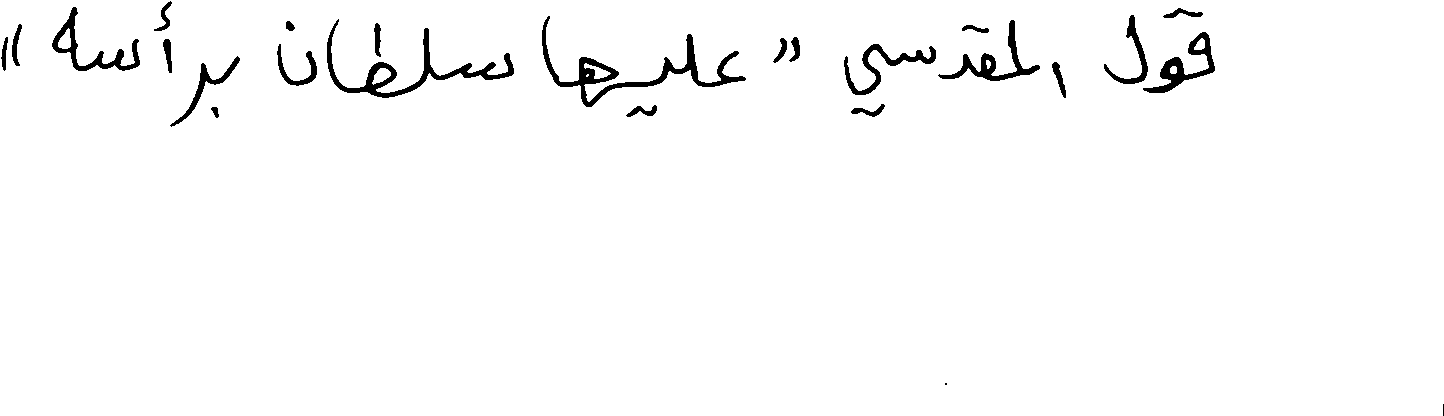 قول المقدسي "عليها سلطان برأسه"